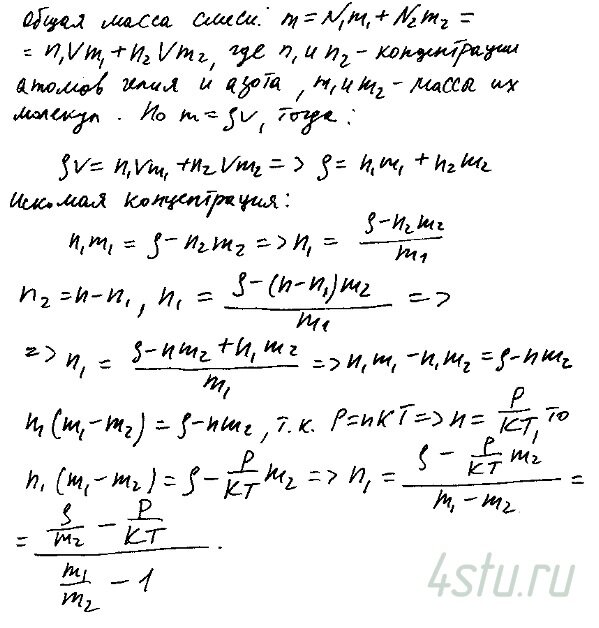 Общая масса смеси: m = N₁m₁ + N₂m₂ =
= n₁Vm₁ + n₂Vm₂, где n₁ и n₂ - концентрации
атомов гелия и азота, m₁ и m₂ - масса их
молекул. Но m = ρV, тогда:
ρV = n₁Vm₁ + n₂Vm₂ => ρ = n₁m₁ + n₂m₂
Искомая концентрация:
n₁m₁ = ρ - n₂m₂ => n₁ = (ρ - n₂m₂)/m₁
n₂ = n - n₁, n₁ = (ρ - (n - n₁)m₂)/m₁ =>
=> n₁ = (ρ - nm₂ + n₁m₂)/m₁ => n₁m₁ - n₁m₂ = ρ - nm₂
n₁(m₁ - m₂) = ρ - nm₂, т.к. P = nKT => n = P/KT, то
n₁(m₁ - m₂) = ρ - P/KT m₂ => n₁ = (ρ - P/KT m₂)/(m₁ - m₂) =
= (ρ/m₂ - P/KT)/(m₁/m₂ - 1).
4stu.ru